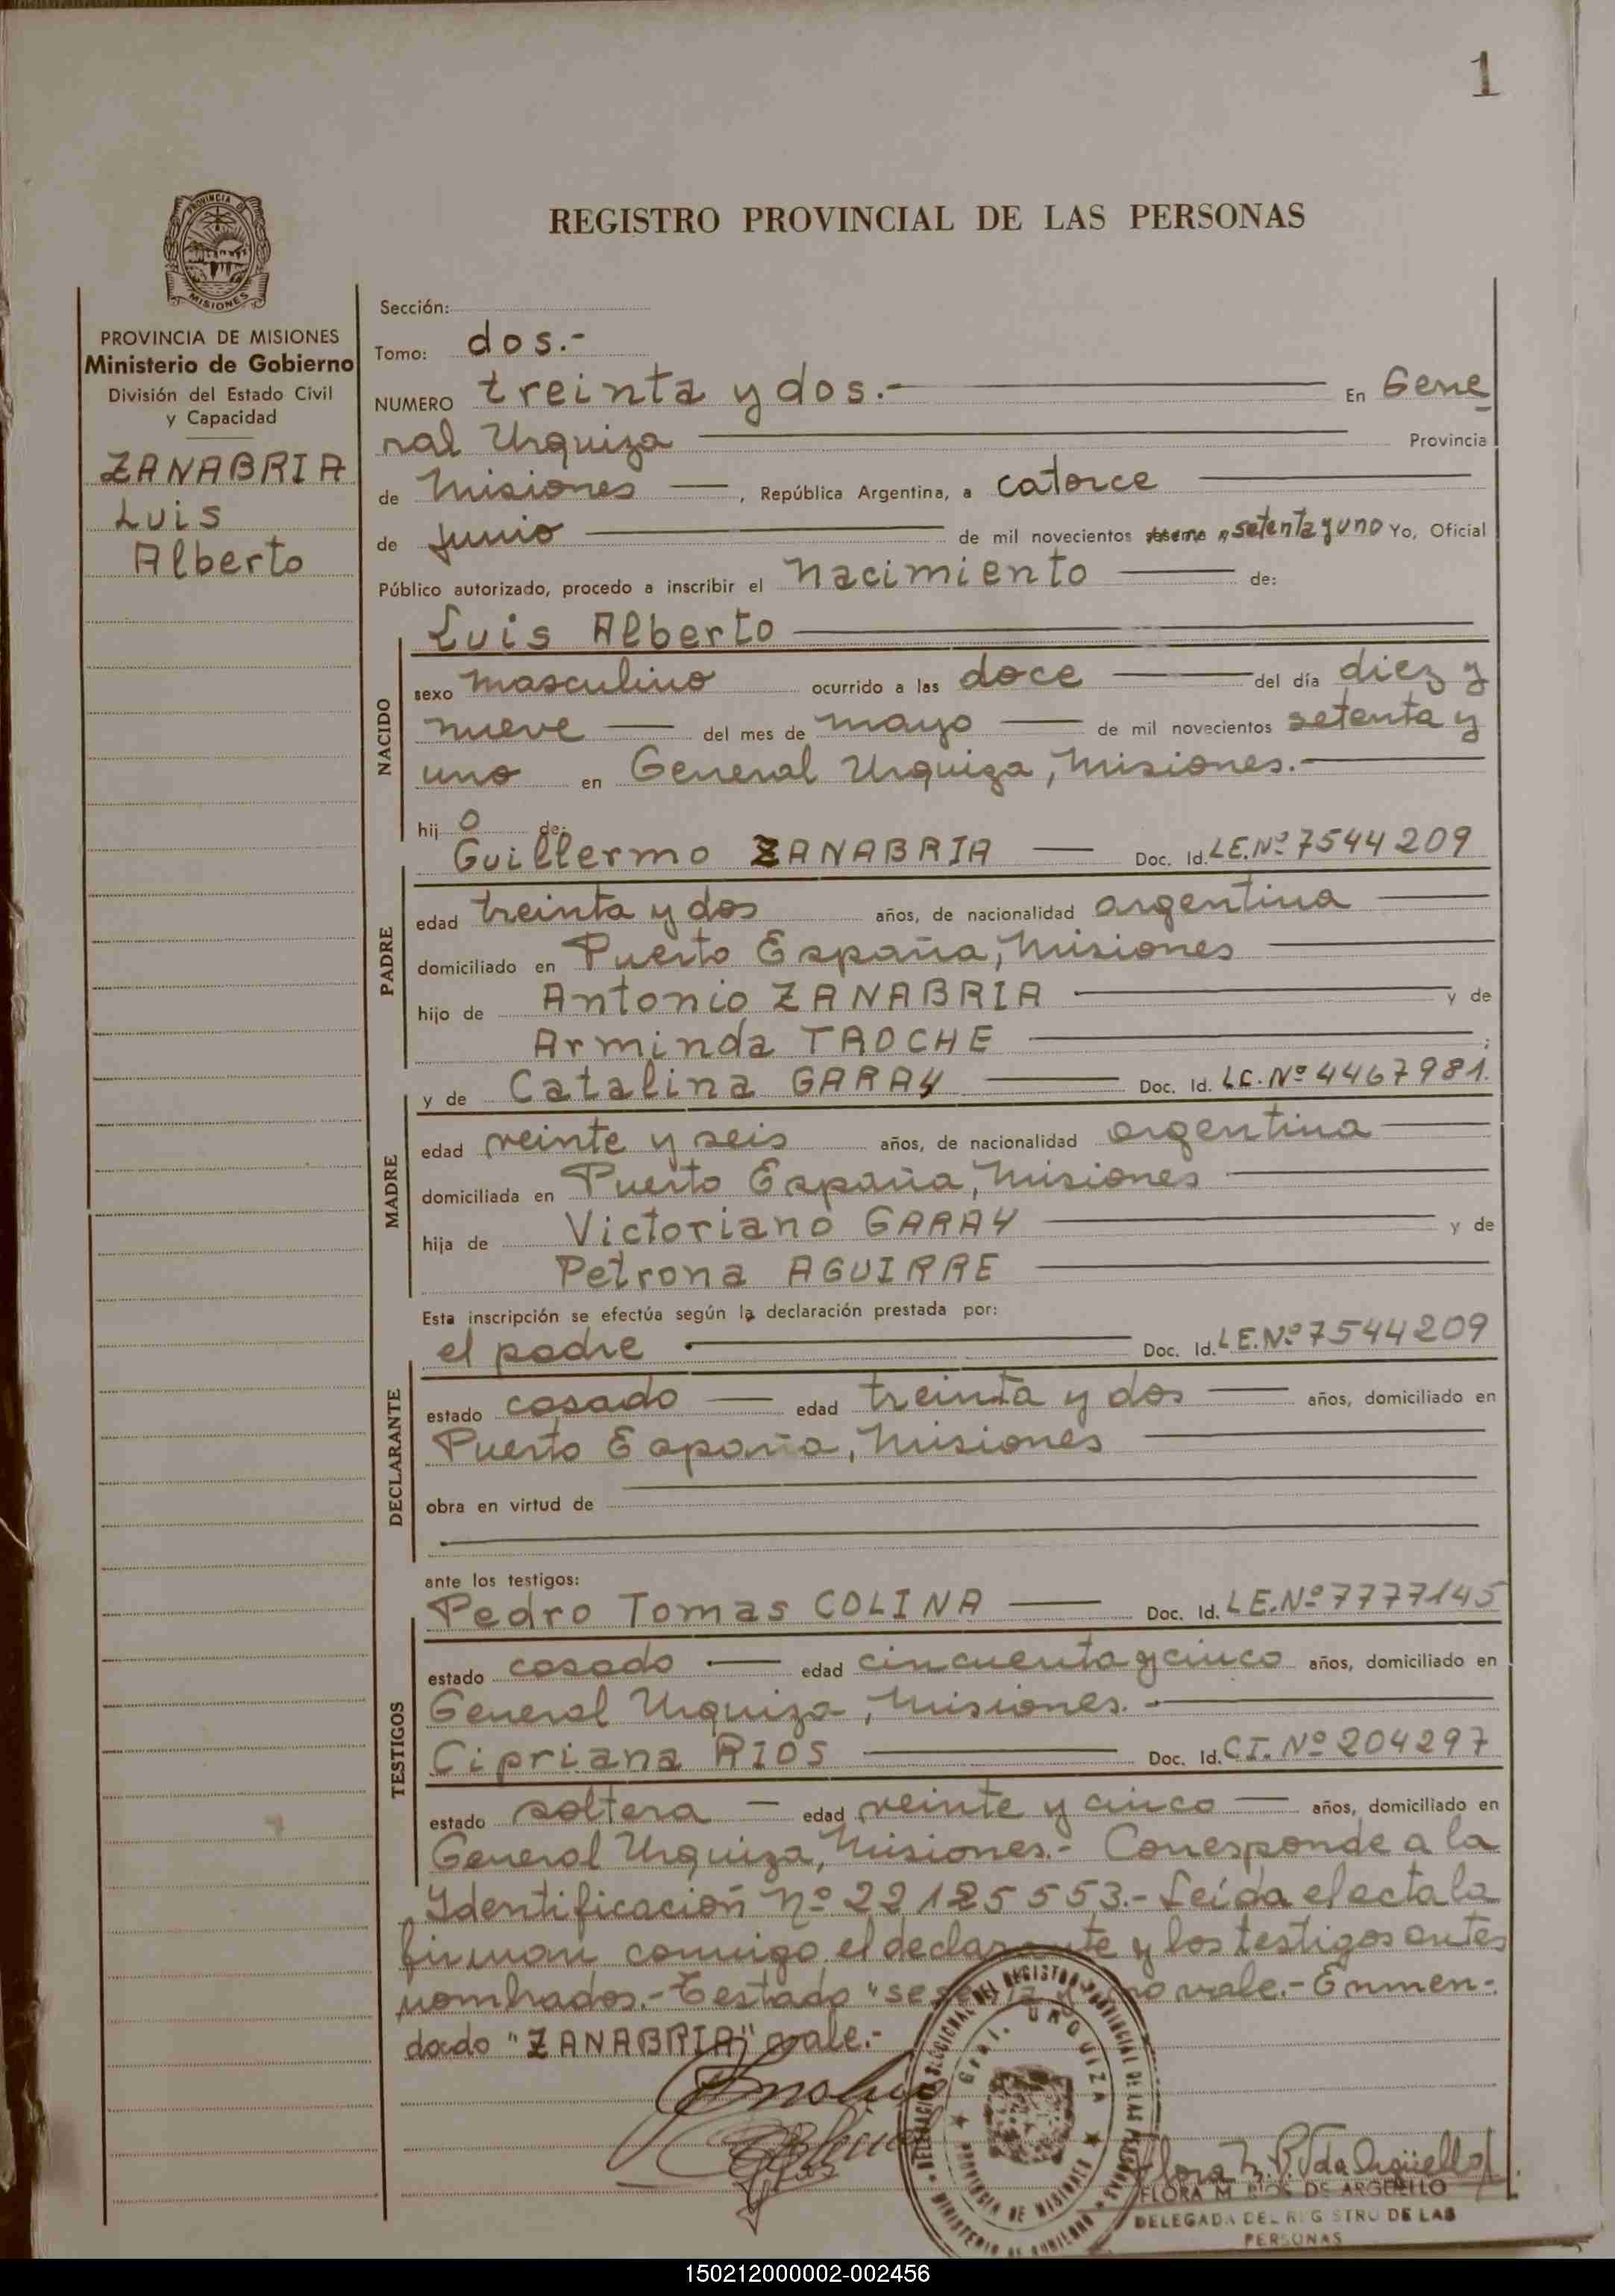 1
REGISTRO PROVINCIAL DE LAS PERSONAS
PROVINCIA DE MISIONES
PROVINCIA DE MISIONES
Ministerio de Gobierno
División del Estado Civil
y Capacidad
ZANABRIA
Luis
Alberto
Sección:
Tomo: dos.-
NUMERO treinta y dos.- En Gene
ral Urquiza Provincia
de Misiones , República Argentina, a catorce
de junio de mil novecientos setenta y uno Yo, Oficial
Público autorizado, procedo a inscribir el nacimiento de:
NACIDO
Luis Alberto
sexo masculino ocurrido a las doce del día diez y
nueve del mes de mayo de mil novecientos setenta y
uno en General Urquiza, Misiones.-
hijo de:
PADRE
Guillermo ZANABRIA Doc. Id. L.E. Nº 7544209
edad treinta y dos años, de nacionalidad argentina
domiciliado en Puerto España, Misiones
hijo de Antonio ZANABRIA y de
Arminda TAOCHE ;
MADRE
y de Catalina GARAY Doc. Id. L.C. Nº 4467981.
edad veinte y seis años, de nacionalidad argentina
domiciliada en Puerto España, Misiones
hija de Victoriano GARAY y de
Petrona AGUIRRE
Esta inscripción se efectúa según la declaración prestada por:
DECLARANTE
el padre Doc. Id. L.E. Nº 7544209
estado casado edad treinta y dos años, domiciliado en
Puerto España, Misiones
obra en virtud de
ante los testigos:
TESTIGOS
Pedro Tomas COLINA Doc. Id. L.E. Nº 7777145
estado casado edad cincuenta y cinco años, domiciliado en
General Urquiza, Misiones.-
Cipriana RIOS Doc. Id. C.I. Nº 204297
estado soltera edad veinte y cinco años, domiciliado en
General Urquiza, Misiones.- Corresponde a la
Identificación Nº 22125553.- Leída el acta la
firman conmigo el declarante y los testigos antes
nombrados.- Testado "sesenta y" no vale.- Enmen-
dado "ZANABRIA" vale.-
DELEGACION SECCIONAL DEL REGISTRO PROVINCIAL DE LAS PERSONAS
Gral. URQUIZA
PROVINCIA DE MISIONES
MINISTERIO DE GOBIERNO
Flora M. R. Vda Argüello
FLORA M RIOS DE ARGUELLO
DELEGADA DEL REGISTRO DE LAS
PERSONAS
150212000002-002456